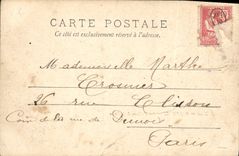 CARTE POSTALE
Ce côté est exclusivement réservé à l'adresse.
Mademoiselle Marthe
Crosnier
26 rue Clisson
Coin de la rue de Dunois
Paris